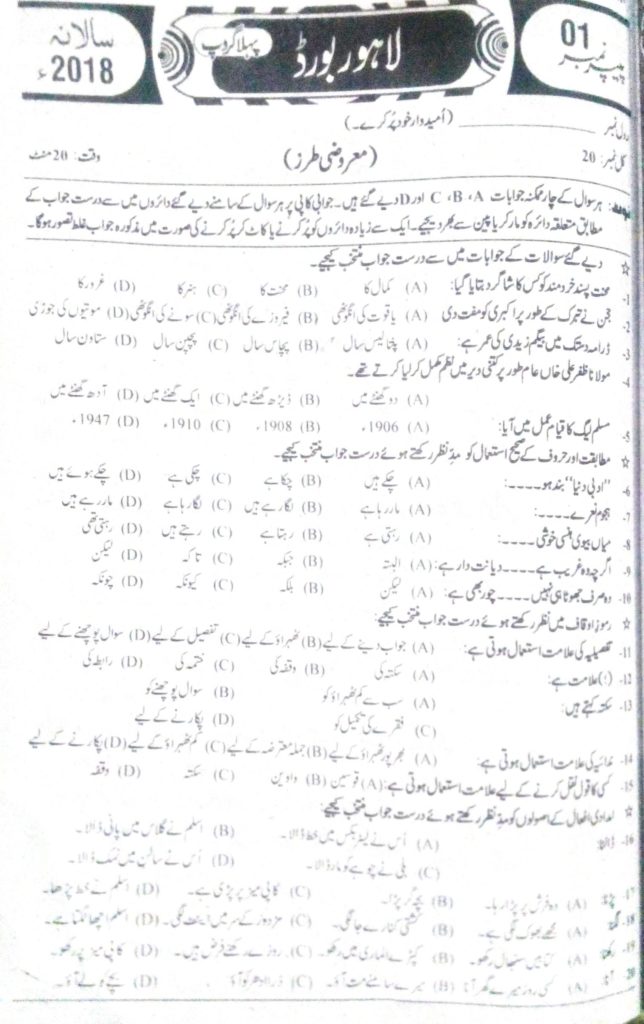 پیپر نمبر 01
لاہور بورڈ
پہلا گروپ
سالانہ 2018ء
رول نمبر ـــــــــــــ (امیدوار خود پُر کرے۔)
کل نمبر: 20 (معروضی طرز) وقت: 20 منٹ
ہر سوال کے چار ممکنہ جوابات C ،B ،A اور D دیے گئے ہیں۔ جوابی کاپی پر ہر سوال کے سامنے دیے گئے دائروں میں سے درست جواب کے
مطابق متعلقہ دائرہ کو مارکر یا پین سے بھر دیجیے۔ ایک سے زیادہ دائروں کو پُر کرنے یا کاٹ کر پُر کرنے کی صورت میں مذکورہ جواب غلط تصور ہوگا۔
☆ دیے گئے سوالات کے جوابات میں سے درست جواب منتخب کیجیے۔
1- محنت پسند خردمند کو کس کا شاگرد بتایا گیا: (A) کمال کا (B) محنت کا (C) ہنر کا (D) غرور کا
2- نے تبرک کے طور پر اکبری کو مفت دی (A) یاقوت کی انگوٹھی (B) فیروزے کی انگوٹھی (C) سونے کی انگوٹھی (D) موتیوں کی جوڑی
3- ڈرامہ دستک میں بیگم زیدی کی عمر ہے: (A) پینتالیس سال (B) پچاس سال (C) پچپن سال (D) ستاون سال
4- مولانا ظفر علی خاں عام طور پر کتنی دیر میں نظم مکمل کر لیا کرتے تھے۔
(A) دو گھنٹے میں (B) ڈیڑھ گھنٹے میں (C) ایک گھنٹے میں (D) آدھ گھنٹے میں
5- مسلم لیگ کا قیام عمل میں آیا: (A) 1906ء (B) 1908ء (C) 1910ء (D) 1947ء
☆ مطابقت اور حروف کے صحیح استعمال کو مدِ نظر رکھتے ہوئے درست جواب منتخب کیجیے۔
6- ’’ادبی دنیا‘‘ بند ہو۔۔۔۔: (A) چکے ہیں (B) چکا ہے (C) چکی ہے (D) چکے ہوئے ہیں
7- ہجوم نعرے۔۔۔۔: (A) مار رہا ہے (B) لگا رہے ہیں (C) لگا رہا ہے (D) مار رہے ہیں
8- میاں بیوی ہنسی خوشی۔۔۔۔: (A) رہتی ہے (B) رہتا ہے (C) رہتے ہیں (D) رہتی تھی
9- اگرچہ وہ غریب ہے۔۔۔۔ دیانت دار ہے: (A) البتہ (B) جبکہ (C) تاکہ (D) لیکن
10- وہ صرف جھوٹا ہی نہیں۔۔۔۔ چور بھی ہے: (A) لیکن (B) بلکہ (C) کیونکہ (D) چونکہ
☆ رموزِ اوقاف میں نظر رکھتے ہوئے درست جواب منتخب کیجیے:
11- تفصیلیہ کی علامت استعمال ہوتی ہے: (A) جواب دینے کے لیے (B) ٹھہراؤ کے لیے (C) تفصیل کے لیے (D) سوال پوچھنے کے لیے
12- (:) علامت ہے: (A) سکتہ کی (B) وقفہ کی (C) ختمہ کی (D) رابطہ کی
13- سکتہ کہتے ہیں: (A) سب سے کم ٹھہراؤ کو (B) سوال پوچھنے کو
(C) فقرے کی تکمیل کو (D) پکارنے کے لیے
14- ندائیہ کی علامت استعمال ہوتی ہے: (A) بھرپور ٹھہراؤ کے لیے (B) جملہ معترضہ کے لیے (C) کم ٹھہراؤ کے لیے (D) پکارنے کے لیے
15- کسی کا قول نقل کرنے کے لیے علامت استعمال ہوتی ہے: (A) قوسین (B) واوین (C) سکتہ (D) وقفہ
☆ امدادی افعال کے اصولوں کو مدِ نظر رکھتے ہوئے درست جواب منتخب کیجیے:
16- ڈالنا: (A) اُس نے لیٹر بکس میں خط ڈالا۔ (B) اسلم نے گلاس میں پانی ڈالا۔
(C) بلی نے چوہے کو مار ڈالا۔ (D) اُس نے سالن میں نمک ڈالا۔
17- (A) وہ فرش پر پڑا رہا۔ (B) بچہ گر پڑا۔ (C) کاپی میز پر پڑی ہے۔ (D) اسلم نے خط پڑھا۔
18- لگنا (A) مجھے بھوک لگی ہے۔ (B) کشتی کنارے جا لگی۔ (C) مزدور کے سر میں اینٹ لگی۔ (D) اسلم اچھا لگتا ہے۔
19- رکھنا (A) کتابیں سنبھال رکھو۔ (B) کپڑے الماری میں رکھو۔ (C) روزے رکھنے فرض ہیں۔ (D) کاپی میز پر رکھو۔
20- آنا (A) کسی روز میرے گھر آنا (B) میرے سامنے مت آؤ۔ (C) ذرا ادھر کو آؤ (D) بچے کو لے آؤ۔